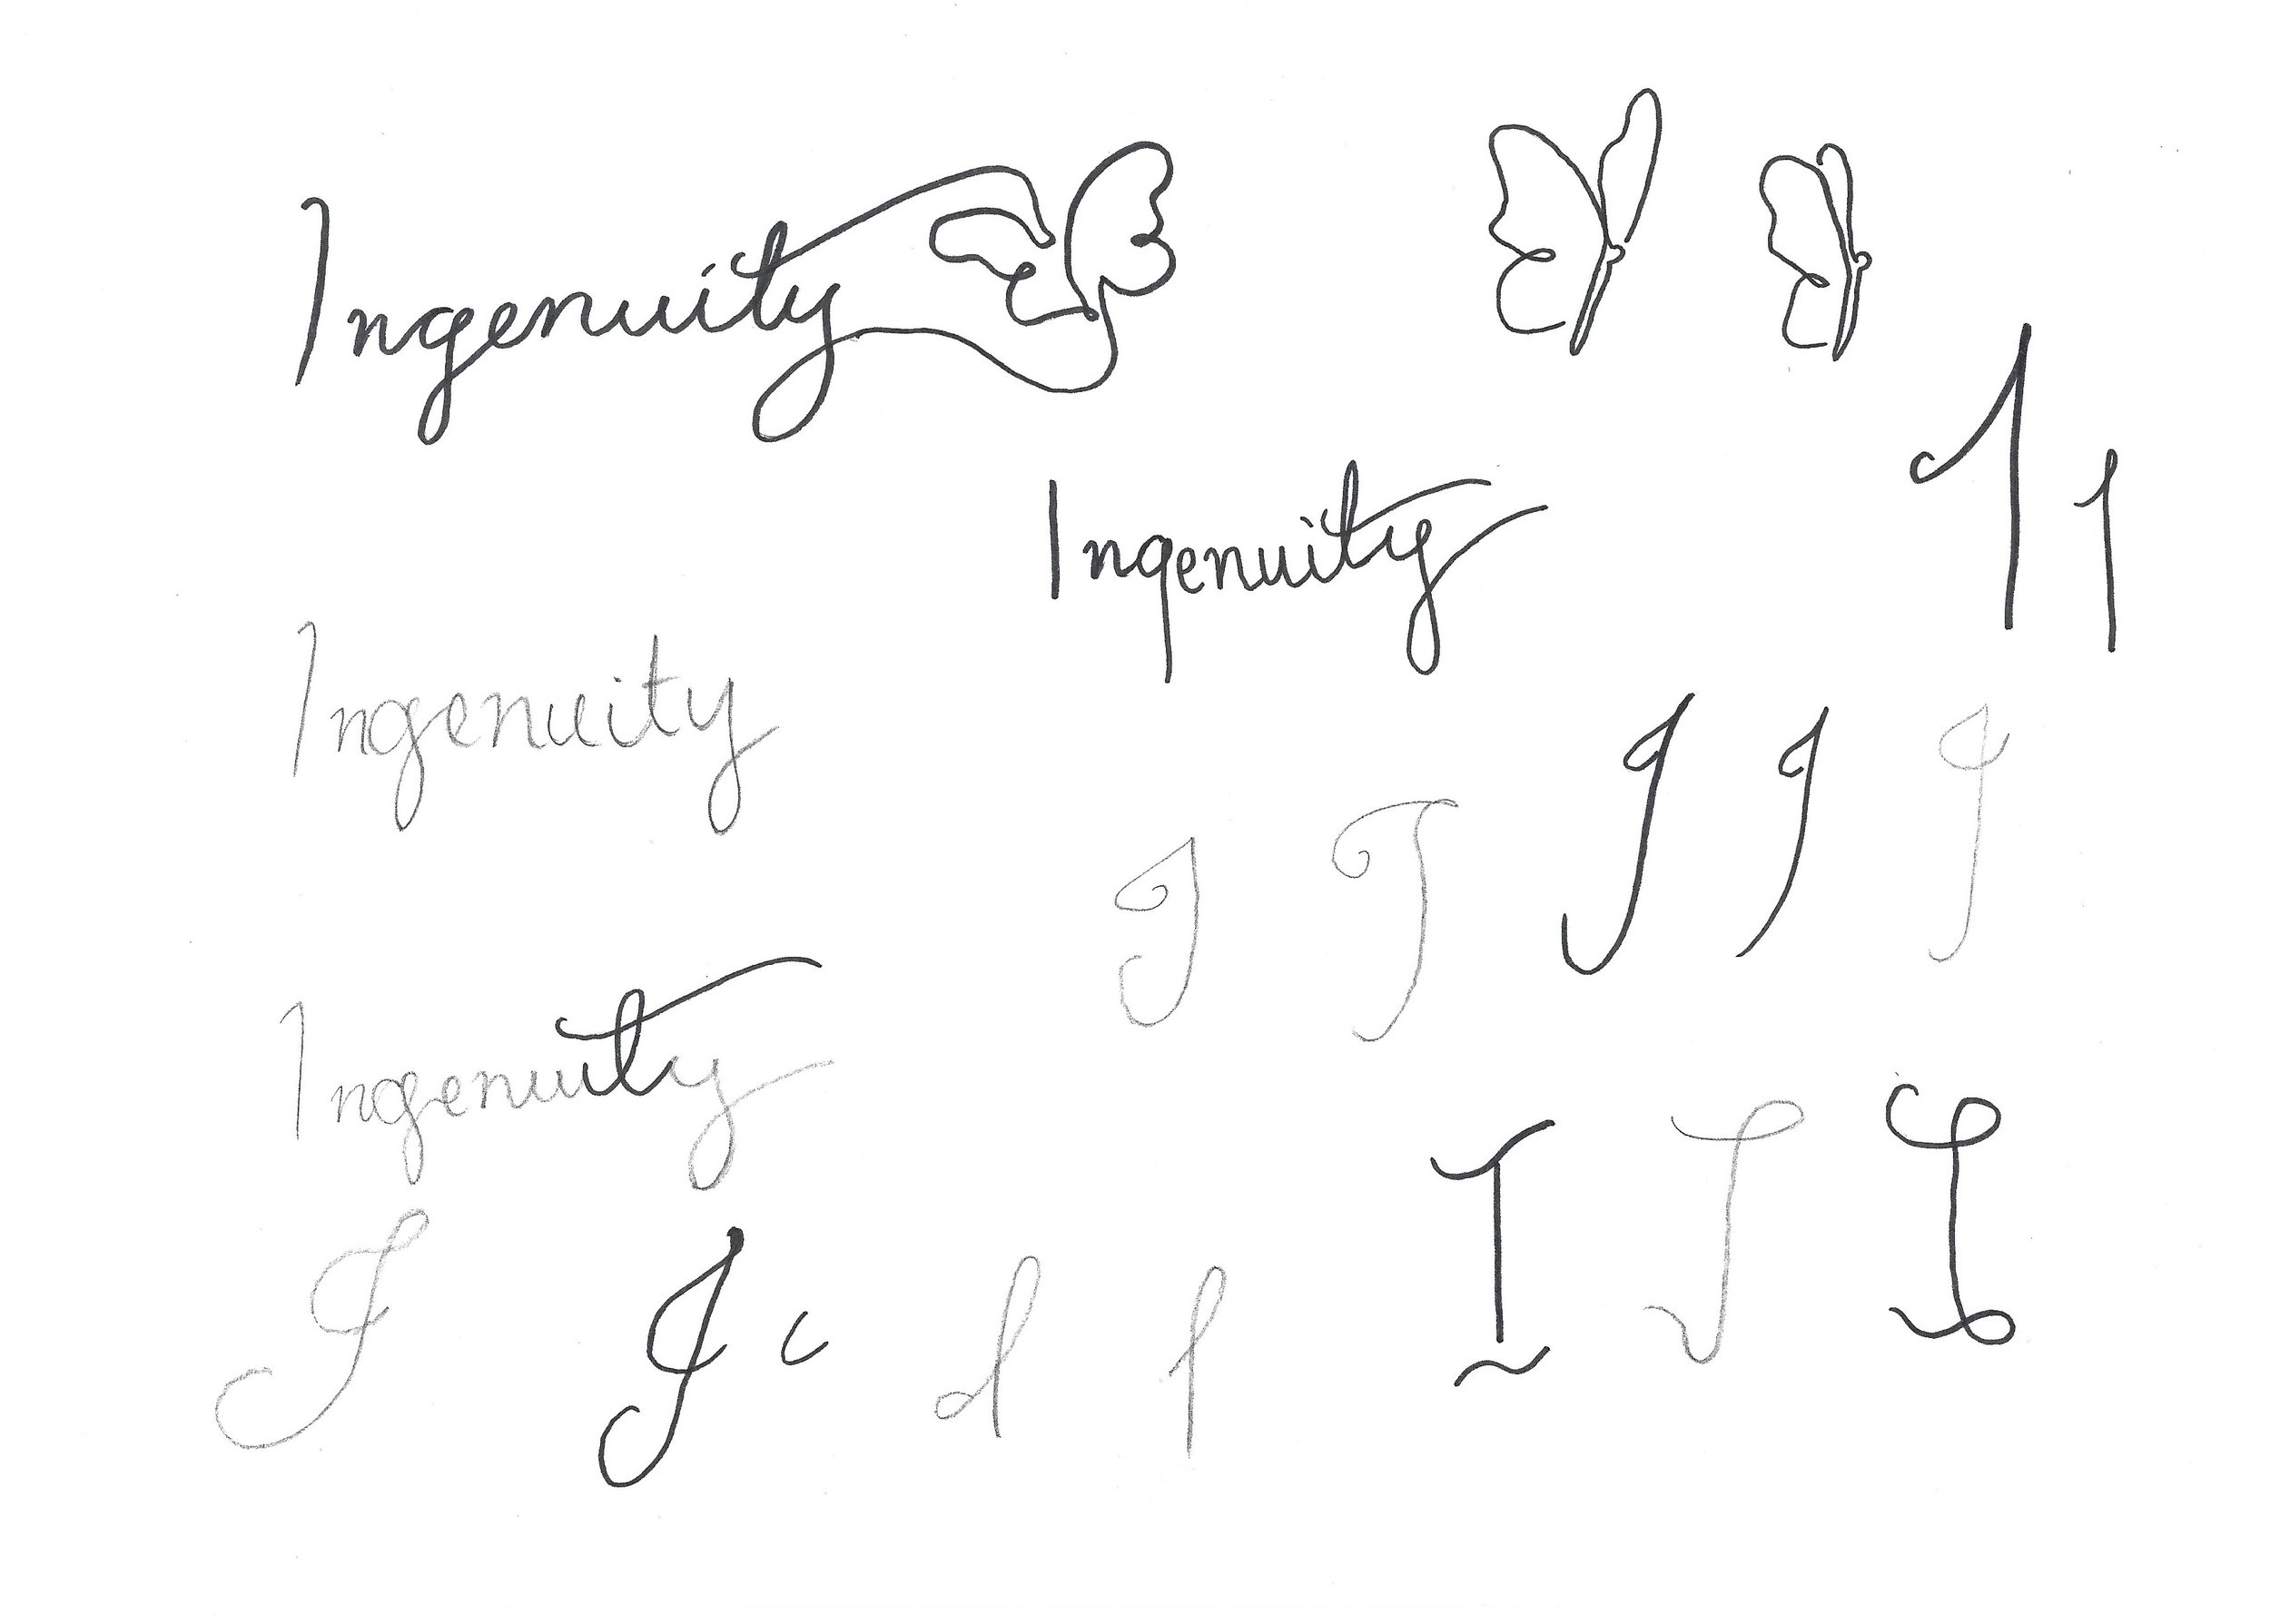 Ingenuity
Ingenuity
Ingenuity
Ingenuity